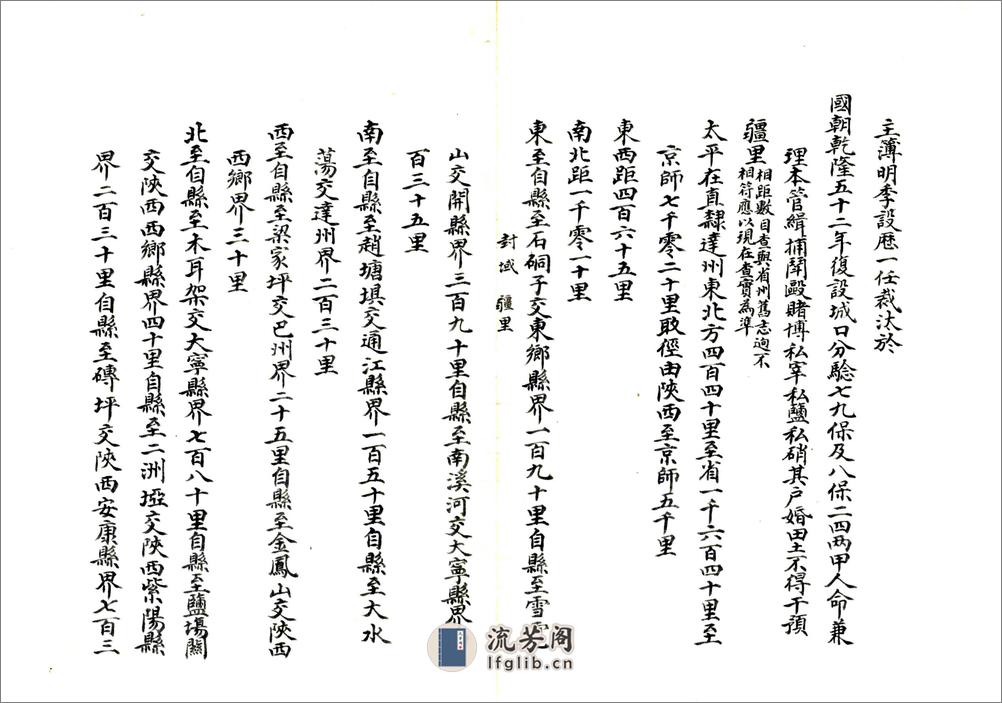 主薄明季設歷一任裁汰於
國朝乾隆五十二年復設城口分驗七九保及八保二四兩甲人命兼
理本管緝捕鬪毆賭博私宰私鹽私硝其戶婚田土不得干預
疆里相距數目查與省州舊志逈不
相符應以現在查實為準
太平在直隸達州東北方四百四十里至省一千六百四十里至
京師七千零二十里取徑由陝西至京師五千里
東西距四百六十五里
南北距一千零一十里
封域 疆里
東至自縣至石硐子交東鄉縣界一百九十里自縣至雪
山交開縣界三百九十里自縣至南溪河交大寧縣界
百三十五里
南至自縣至趙塘埧交通江縣界一百五十里自縣至大水
蕩交達州界二百三十里
西至自縣至梁家坪交巴州界二十五里自縣至金鳳山交陝西
西鄉界三十里
北至自縣至木耳架交大寧縣界七百八十里自縣至鹽場關
交陝西西鄉縣界四十里自縣至二洲埡交陝西紫陽縣
界二百三十里自縣至磚坪交陝西安康縣界七百三
流芳阁
lfglib.cn